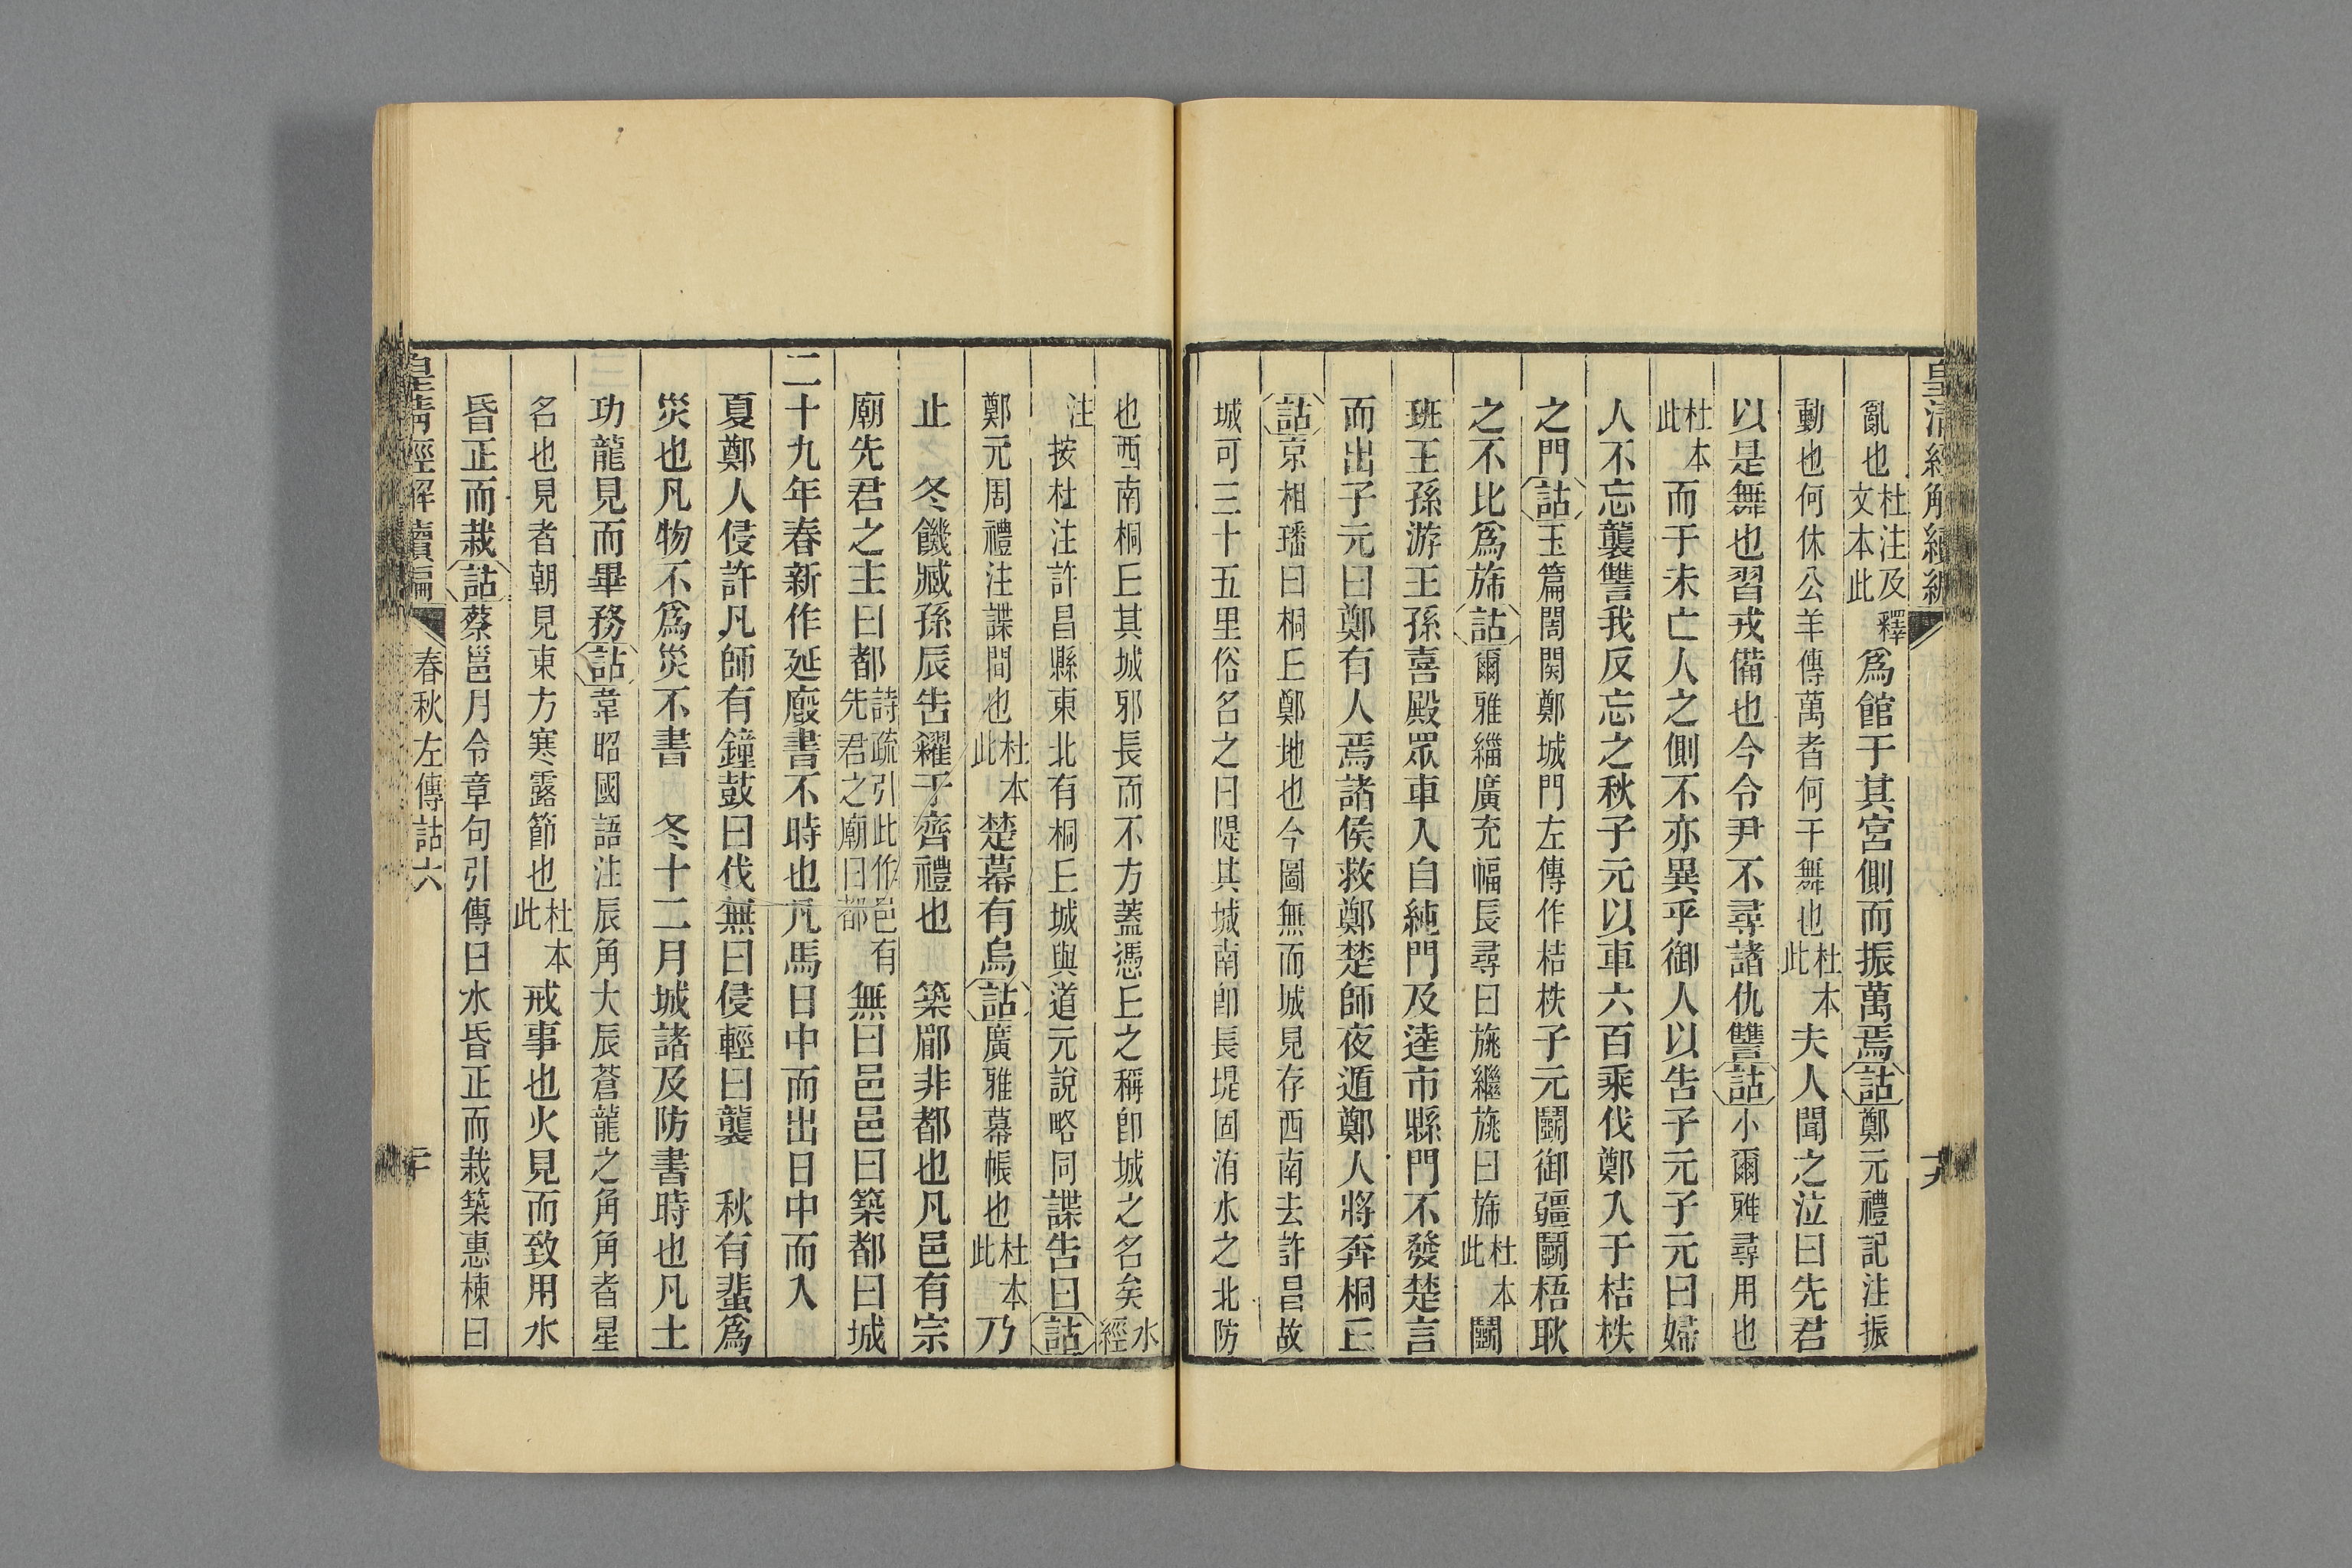 皇清經解續編
亂也杜注及釋文本此爲館于其宮側而振萬焉詁鄭元禮記注振
動也何休公羊傳萬者何干舞也杜本此夫人聞之泣曰先君
以是舞也習戎備也今令尹不尋諸仇讐詁小爾雅尋用也
杜本此而于未亡人之側不亦異乎御人以告子元子元曰婦
人不忘襲讐我反忘之秋子元以車六百乘伐鄭入于桔柣
之門詁玉篇閤閎鄭城門左傳作桔柣子元鬭御疆鬭梧耿
之不比爲斾詁爾雅緇廣充幅長尋曰旐繼旐曰斾杜本此鬭
班王孫游王孫喜殿眾車入自純門及逵市縣門不發楚言
而出子元曰鄭有人焉諸侯救鄭楚師夜遁鄭人將奔桐丘
詁京相璠曰桐丘鄭地也今圖無而城見存西南去許昌故
城可三十五里俗名之曰隄其城南卽長堤固洧水之北防
也西南桐丘其城邪長而不方蓋憑丘之稱卽城之名矣水經
注按杜注許昌縣東北有桐丘城與道元說略同諜告曰詁
鄭元周禮注諜間也杜本此楚幕有烏詁廣雅幕帳也杜本此乃
止　冬饑臧孫辰告糴于齊禮也　築郿非都也凡邑有宗
廟先君之主曰都詩疏引此作邑有先君之廟曰都無曰邑邑曰築都曰城
二十九年春新作延廏書不時也凡馬日中而出日中而入
夏鄭人侵許凡師有鐘鼓曰伐無曰侵輕曰襲　秋有蜚爲
災也凡物不爲災不書　冬十二月城諸及防書時也凡土
功龍見而畢務詁韋昭國語注辰角大辰蒼龍之角角者星
名也見者朝見東方寒露節也杜本此戒事也火見而致用水
昏正而栽詁蔡邕月令章句引傳曰水昏正而栽築惠棟曰
皇清經解續編　春秋左傳詁六